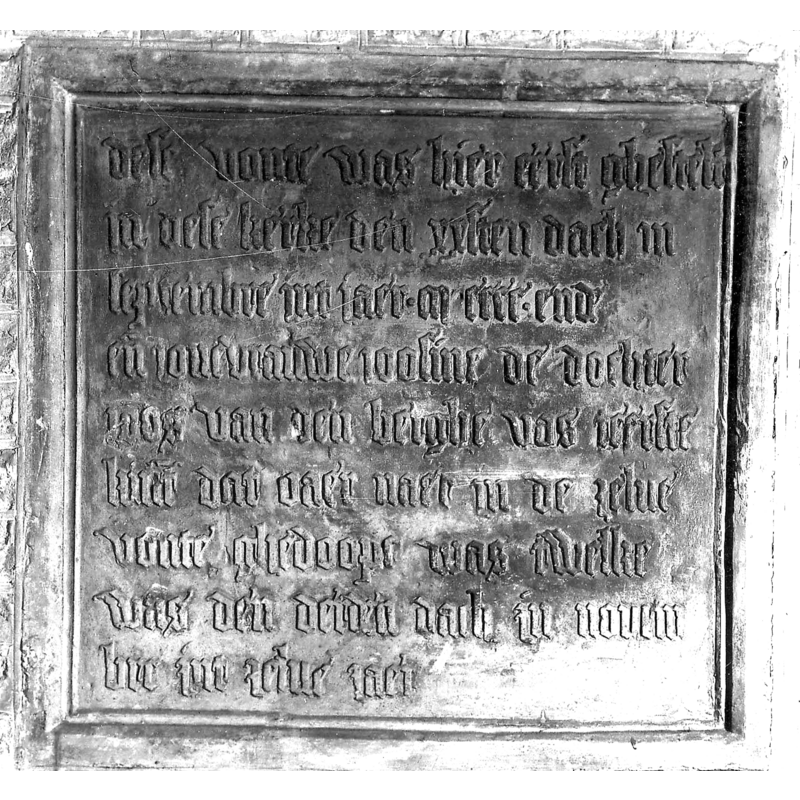 dese vonte was hier eerst ghestelt
in dese kerke den xxsten dach in
septembre int jaer · m · cccc · ende
en joncvrauwe joosine de dochter
van den berghe was teerste
kint dat daer naer in de zelve
vonte ghedoopt was twelke
was den derden dach in novem
bre int zelve jaer